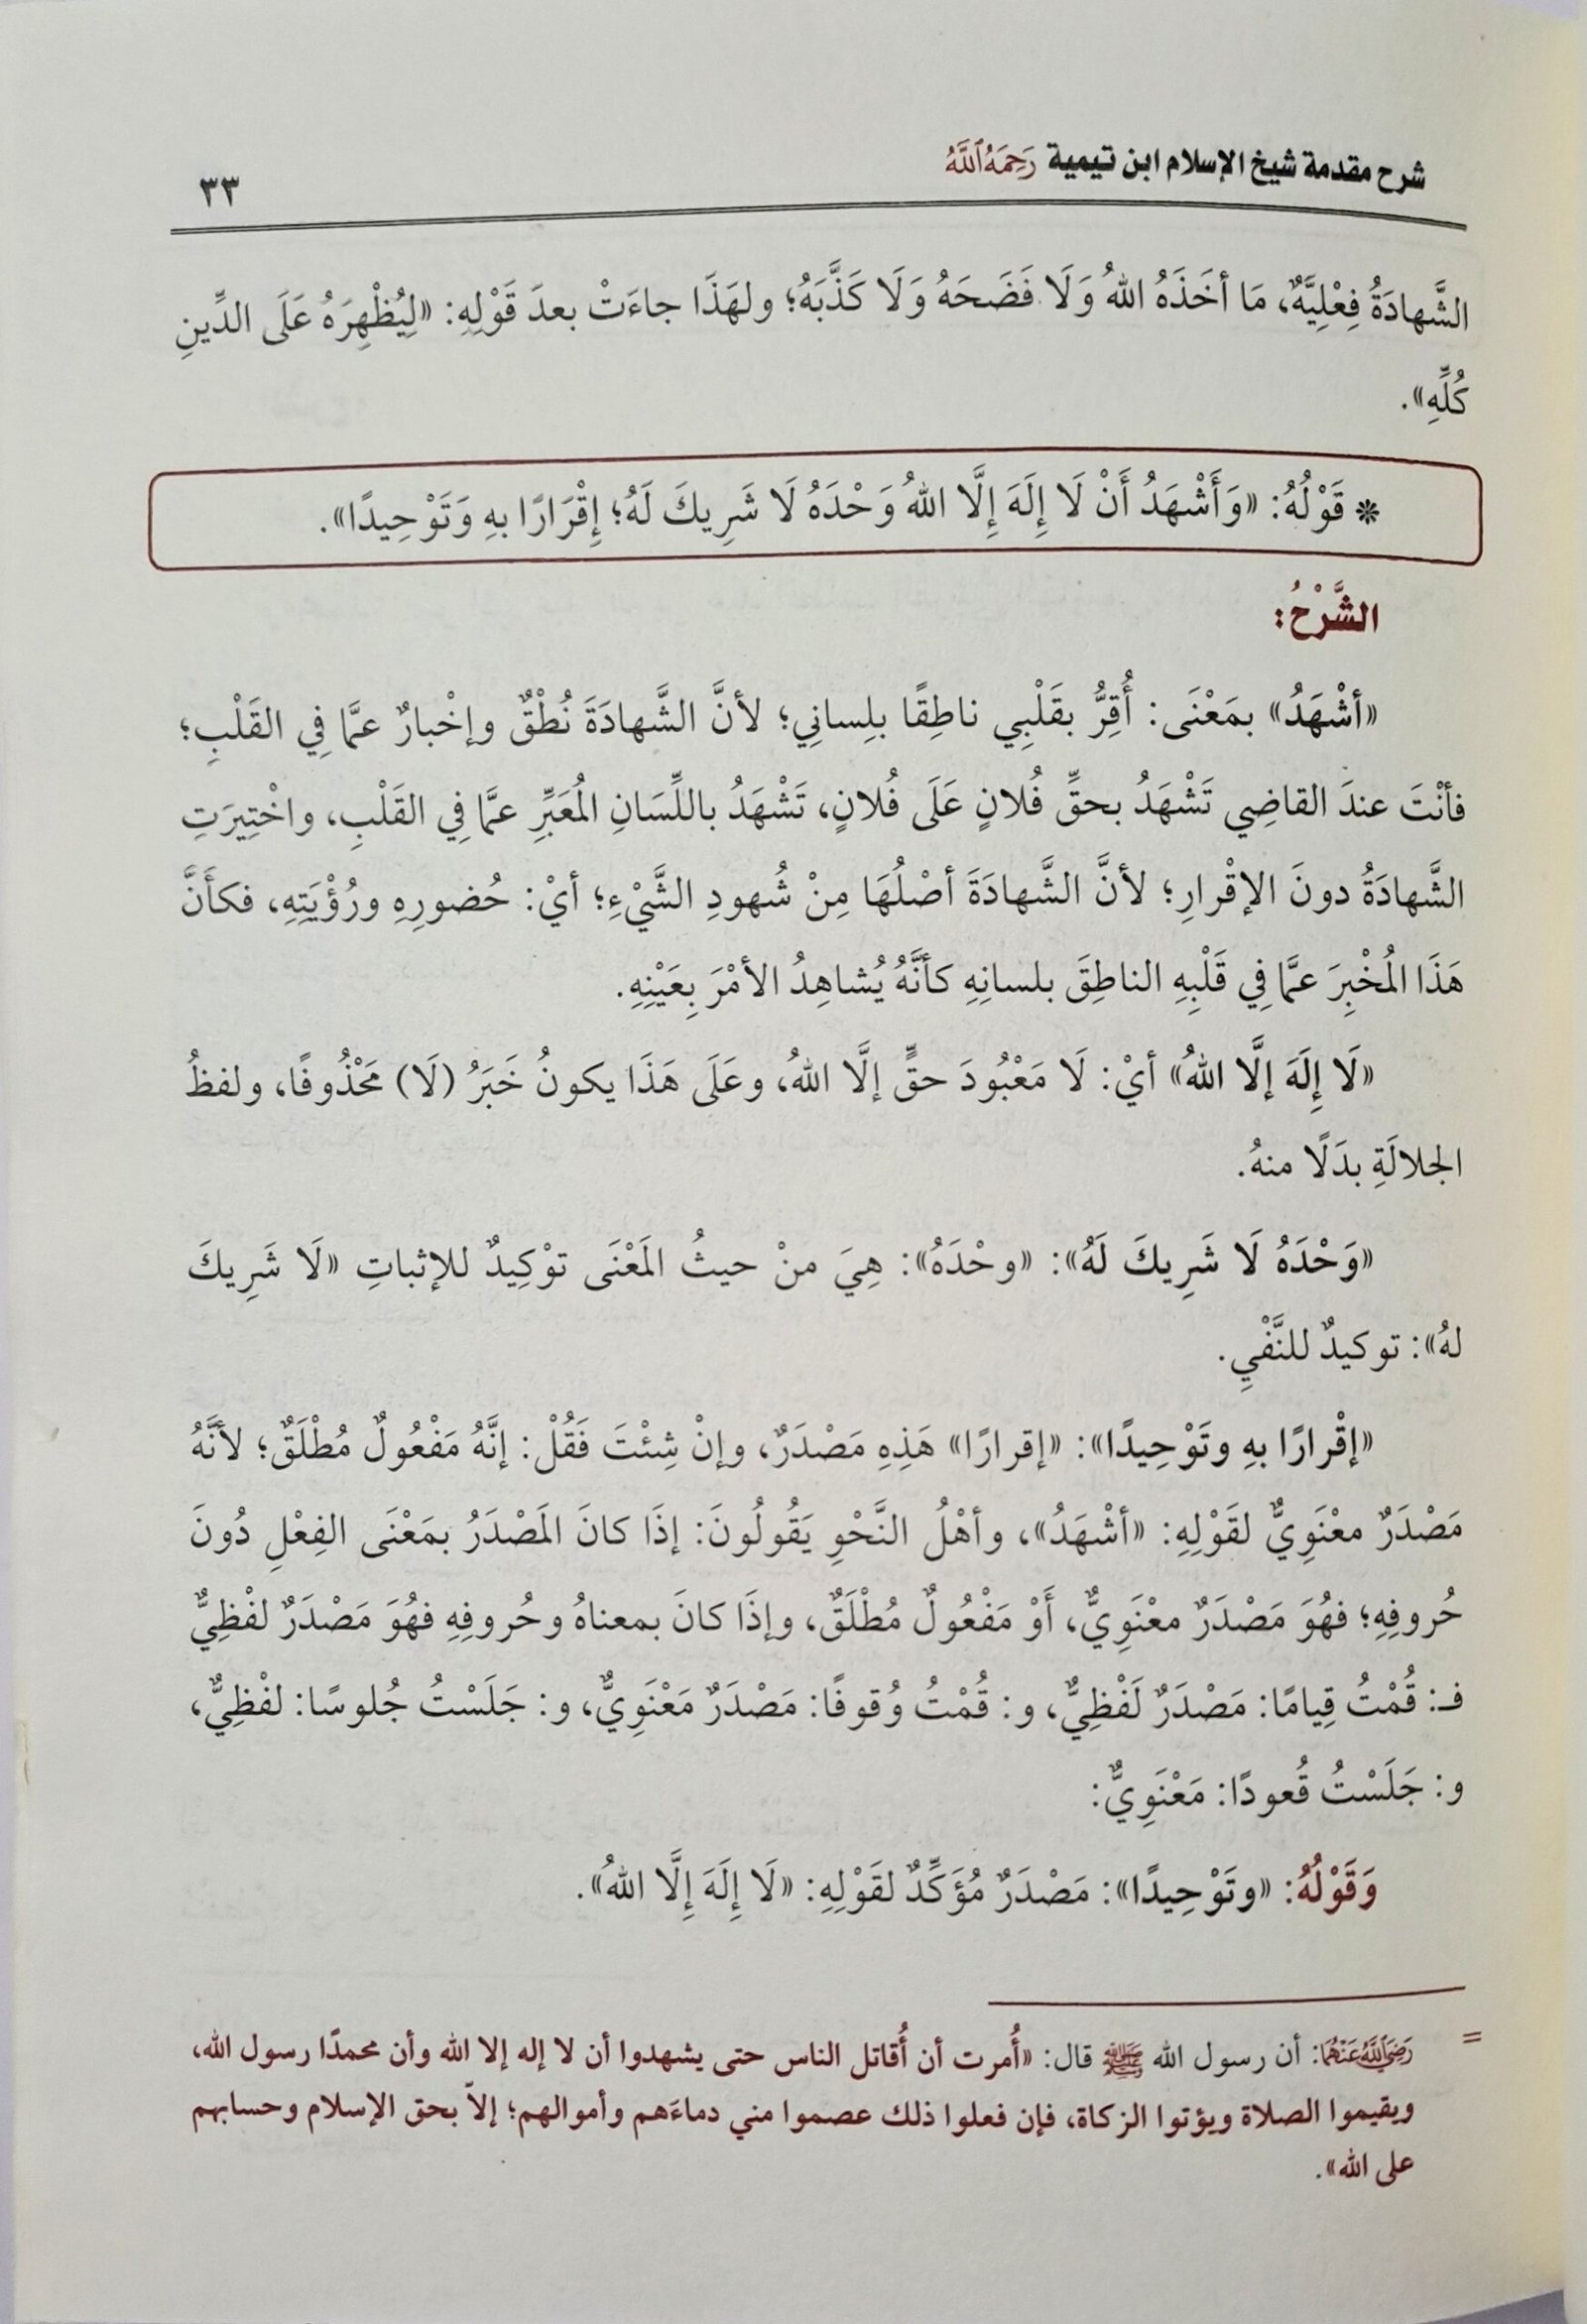 شرح مقدمة شيخ الإسلام ابن تيمية رَحِمَهُ ٱللَّهُ
٣٣
الشَّهادَةُ فِعْلِيَّهٌ، مَا أخَذَهُ اللهُ وَلَا فَضَحَهُ وَلَا كَذَّبَهُ؛ ولهَذَا جاءَتْ بعدَ قَوْلِهِ: «لِيُظْهِرَهُ عَلَى الدِّينِ
كُلِّهِ».
* قَوْلُهُ: «وَأَشْهَدُ أَنْ لَا إِلَهَ إِلَّا اللهُ وَحْدَهُ لَا شَرِيكَ لَهُ؛ إِقْرَارًا بهِ وَتَوْحِيدًا».
الشَّرْحُ:
«أشْهَدُ» بمَعْنَى: أُقِرُّ بقَلْبِي ناطِقًا بلِسانِي؛ لأنَّ الشَّهادَةَ نُطْقٌ وإخْبارٌ عمَّا فِي القَلْبِ؛
فأنْتَ عندَ القاضِي تَشْهَدُ بحقِّ فُلانٍ عَلَى فُلانٍ، تَشْهَدُ باللِّسَانِ المُعَبِّرِ عمَّا فِي القَلْبِ، واخْتِيرَتِ
الشَّهادَةُ دونَ الإقْرارِ؛ لأنَّ الشَّهادَةَ أصْلُهَا مِنْ شُهودِ الشَّيْءِ؛ أيْ: حُضورِهِ ورُؤْيَتِهِ، فكأَنَّ
هَذَا المُخْبِرَ عمَّا فِي قَلْبِهِ الناطِقَ بلسانِهِ كأنَّهُ يُشاهِدُ الأمْرَ بِعَيْنِهِ.
«لَا إِلَهَ إلَّا اللهُ» أيْ: لَا مَعْبُودَ حقٍّ إلَّا اللهُ، وعَلَى هَذَا يكونُ خَبَرُ (لَا) مَحْذُوفًا، ولفظُ
الجلالَةِ بدَلًا منهُ.
«وَحْدَهُ لَا شَرِيكَ لَهُ»: «وحْدَهُ»: هِيَ منْ حيثُ المَعْنَى توْكِيدٌ للإثباتِ «لَا شَرِيكَ
لهُ»: توكيدٌ للنَّفْيِ.
«إقْرارًا بهِ وتَوْحِيدًا»: «إقرارًا» هَذِهِ مَصْدَرٌ، وإنْ شِئْتَ فَقُلْ: إنَّهُ مَفْعُولٌ مُطْلَقٌ؛ لأنَّهُ
مَصْدَرٌ معْنَوِيٌّ لقَوْلِهِ: «أشْهَدُ»، وأهْلُ النَّحْوِ يَقُولُونَ: إذَا كانَ المَصْدَرُ بمَعْنَى الفِعْلِ دُونَ
حُروفِهِ؛ فهُوَ مَصْدَرٌ معْنَوِيٌّ، أَوْ مَفْعُولٌ مُطْلَقٌ، وإذَا كانَ بمعناهُ وحُروفِهِ فهُوَ مَصْدَرٌ لفْظِيٌّ
فـ: قُمْتُ قِيامًا: مَصْدَرٌ لَفْظِيٌّ، و: قُمْتُ وُقوفًا: مَصْدَرٌ مَعْنَوِيٌّ، و: جَلَسْتُ جُلوسًا: لفْظِيٌّ،
و: جَلَسْتُ قُعودًا: مَعْنَوِيٌّ:
وَقَوْلُهُ: «وتَوْحِيدًا»: مَصْدَرٌ مُؤَكِّدٌ لقَوْلِهِ: «لَا إِلَهَ إِلَّا اللهُ».
= رَضِيَ ٱللَّهُ عَنْهُمَا: أن رسول الله ﷺ قال: «أُمرت أن أُقاتل الناس حتى يشهدوا أن لا إله إلا الله وأن محمدًا رسول الله،
ويقيموا الصلاة ويؤتوا الزكاة، فإن فعلوا ذلك عصموا مني دماءَهم وأموالهم؛ إلاّ بحق الإسلام وحسابهم
على الله».